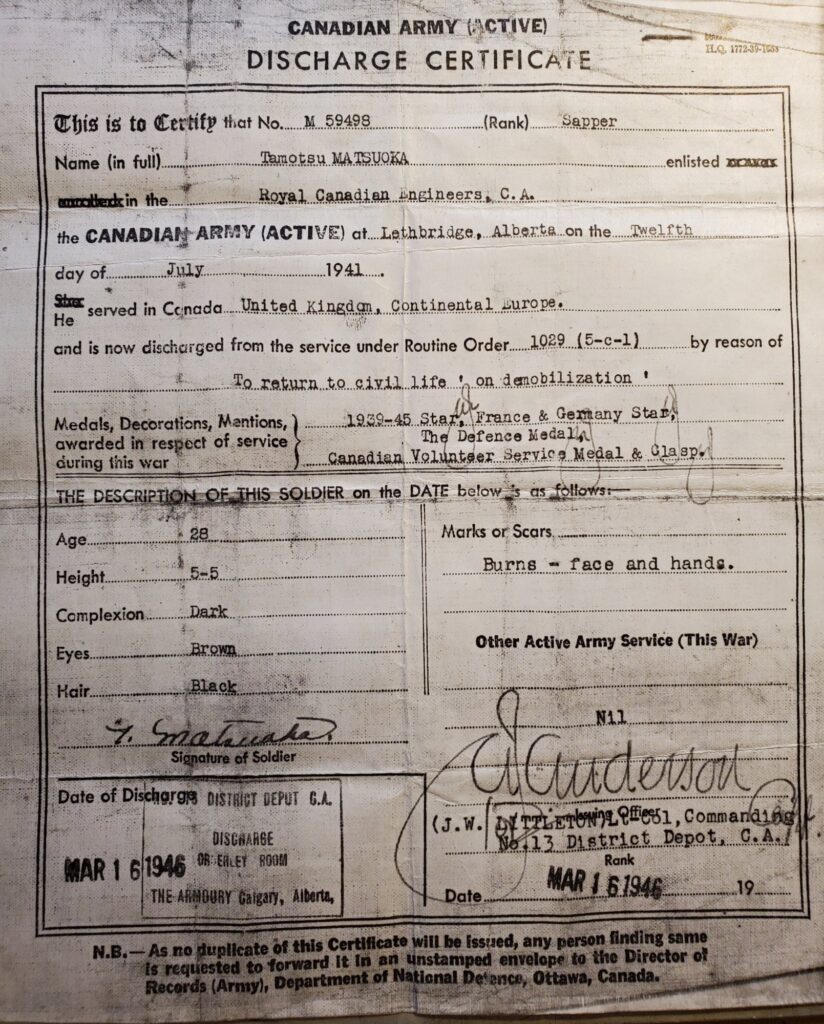 CANADIAN ARMY (ACTIVE)
H.Q. 1772-39-1033
DISCHARGE CERTIFICATE
This is to Certify that No. M 59498 (Rank) Sapper
Name (in full) Tamotsu MATSUOKA enlisted
in the Royal Canadian Engineers, C.A.
the CANADIAN ARMY (ACTIVE) at Lethbridge, Alberta on the Twelfth
day of July 1941.
He served in Canada United Kingdom, Continental Europe.
and is now discharged from the service under Routine Order 1029 (5-c-1) by reason of
To return to civil life ' on demobilization '
Medals, Decorations, Mentions, 1939-45 Star, France & Germany Star,
awarded in respect of service The Defence Medal,
during this war Canadian Volunteer Service Medal & Clasp.
THE DESCRIPTION OF THIS SOLDIER on the DATE below is as follows:—
Age 28
Marks or Scars
Height 5-5
Burns - face and hands.
Complexion Dark
Eyes Brown
Other Active Army Service (This War)
Hair Black
Nil
T. Matsuoka.
Signature of Soldier
Anderson
Date of Discharge DISTRICT DEPOT C.A.
DISCHARGE
ORDERLY ROOM
MAR 16 1946
THE ARMOURY Calgary, Alberta,
(J.W. LYTTLETON) Lt-Col, Commanding
Issuing Officer
No.13 District Depot, C.A.
Rank
Date MAR 16 1946 19
N.B.— As no duplicate of this Certificate will be issued, any person finding same
is requested to forward it in an unstamped envelope to the Director of
Records (Army), Department of National Defence, Ottawa, Canada.